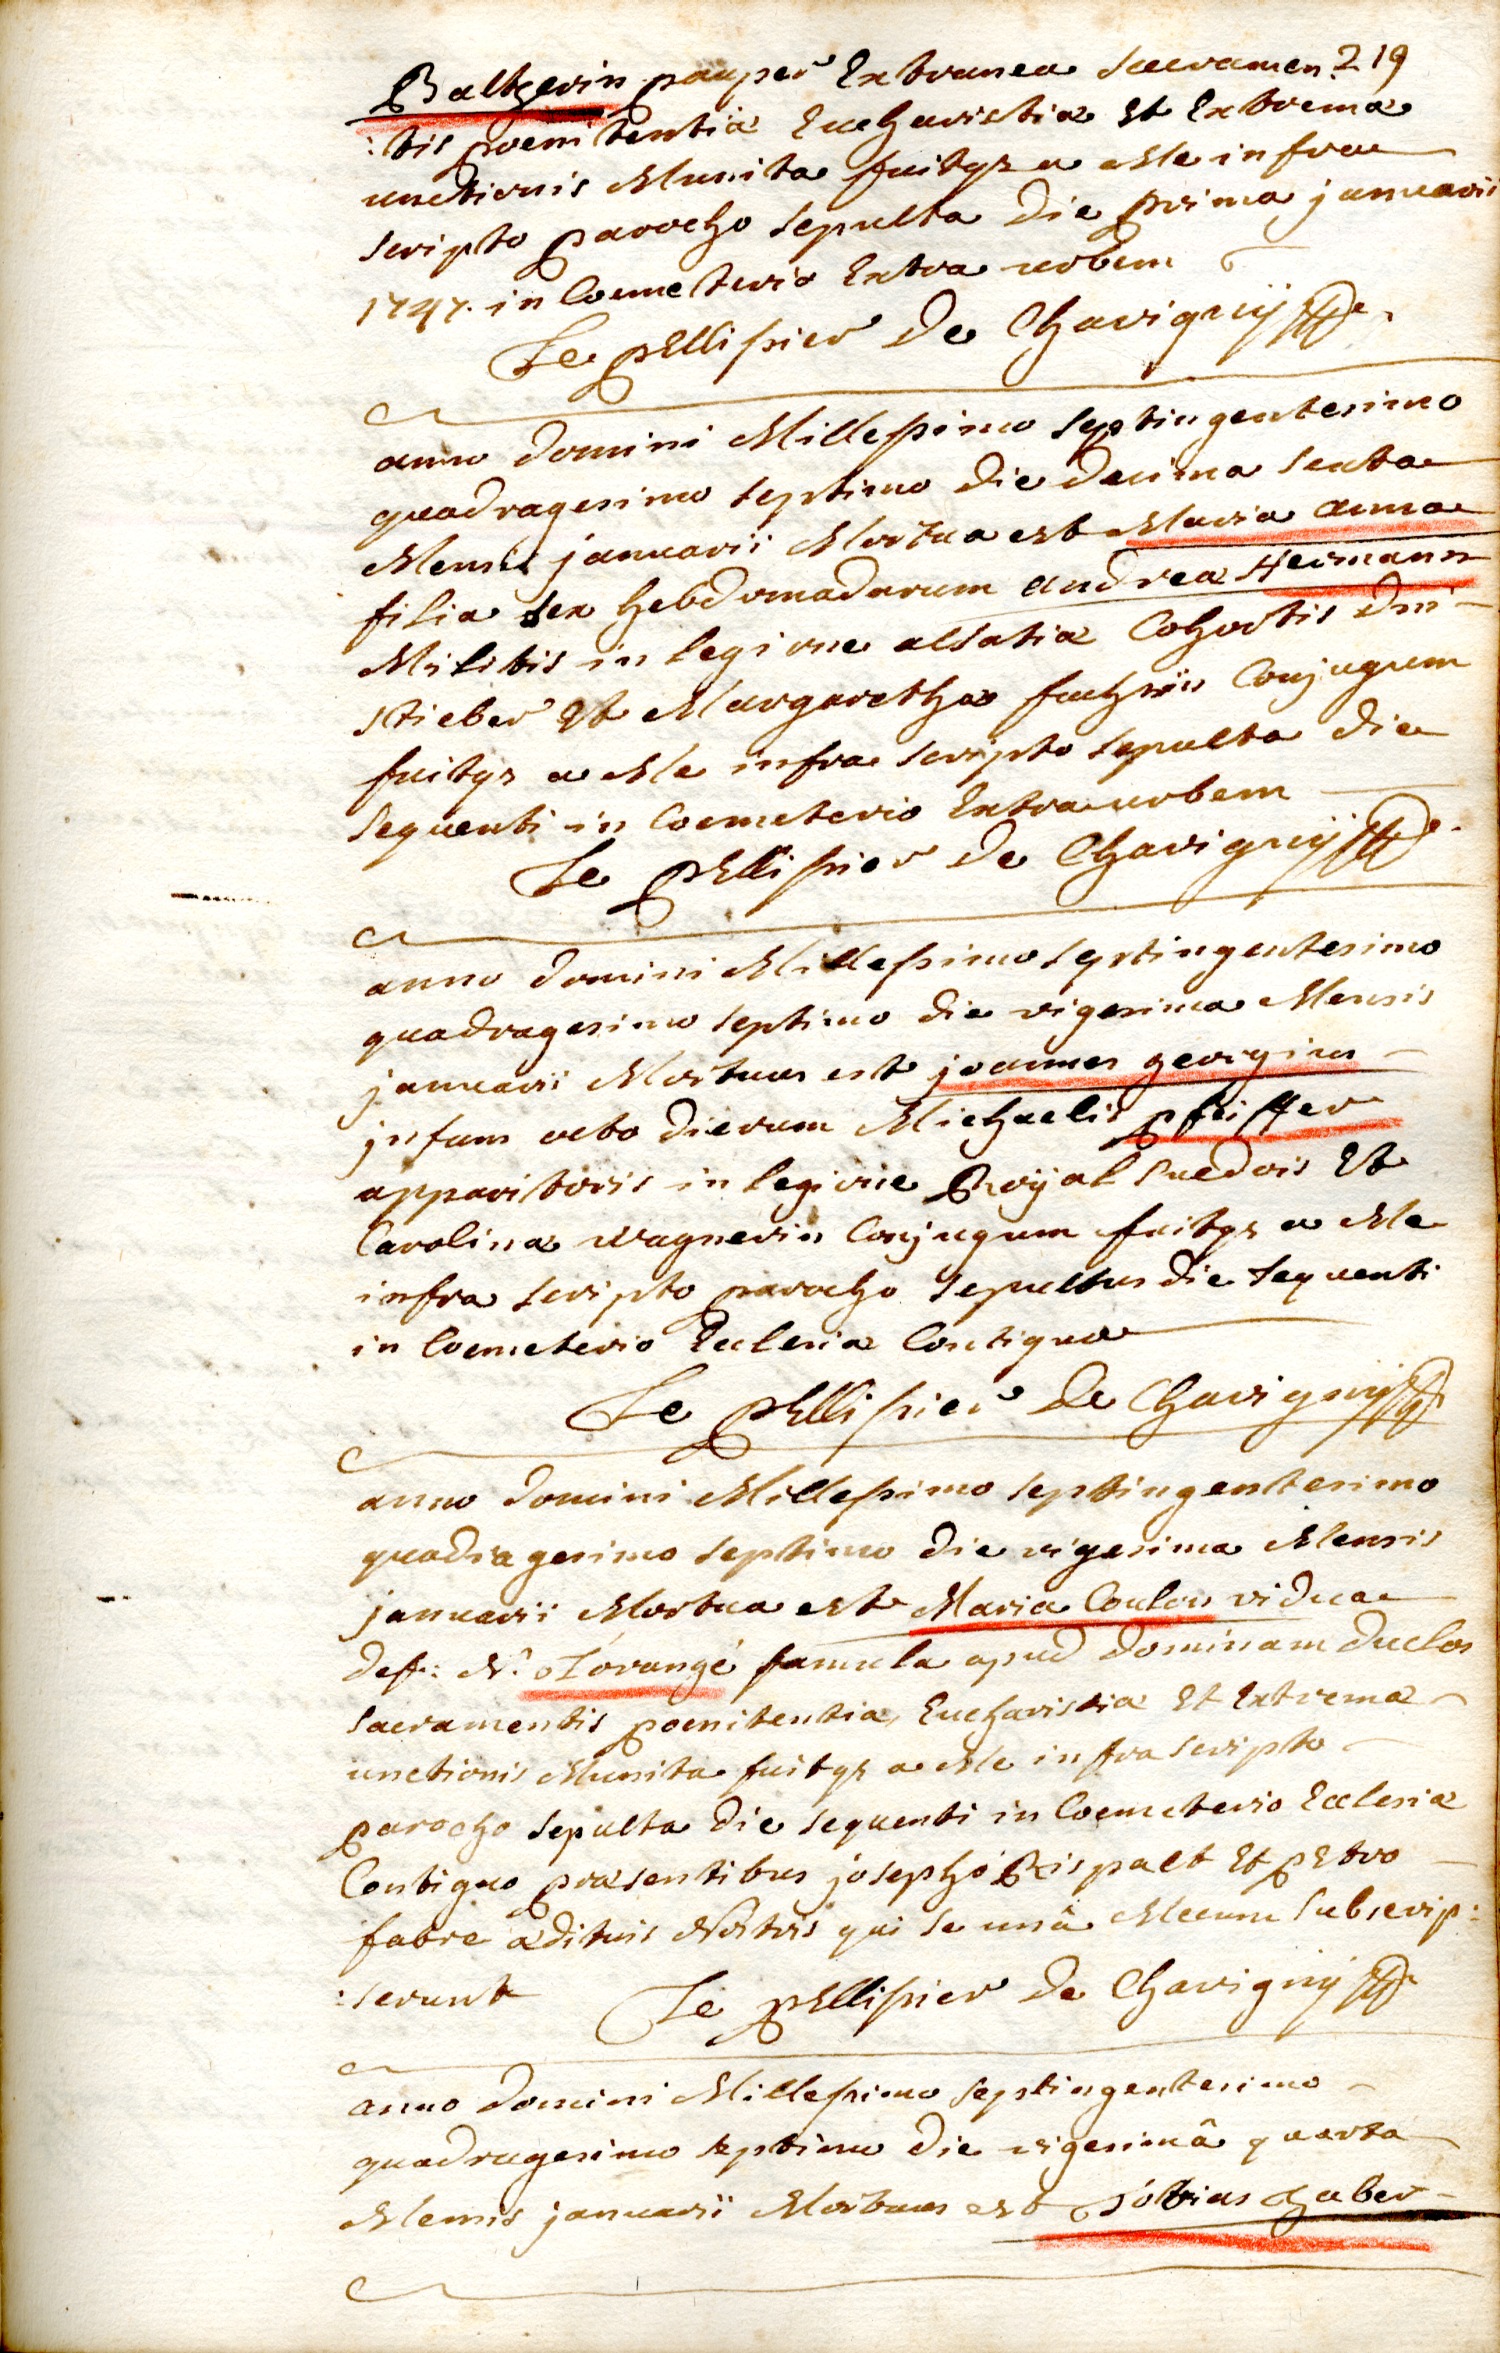 219
Baltzerin pauper Extranea Sacramen
:tis poenitentiæ Eucharistiæ Et Extremæ
unctionis Munita fuitqz a Me infra
scripto parocho sepulta die prima januarii
1747. in Coemeterio Extra urbem
Le pEllissier De Chavigny
anno domini Millessimo septingentesimo
quadragesimo septimo die decima sexta
Mensis januarii Mortua est Maria anna
filia sex hebdomadarum andreæ Hermann
Militis in legione alsatiæ Cohortis dni
Stieber Et Margarethæ Conjugum
fuitqz a Me infra scripto sepulta die
sequenti in Coemeterio Extra urbem
Le pEllissier De Chavigny
anno domini Millessimo septingentesimo
quadragesimo septimo die vigesima Mensis
januarii Mortuus est joannes georgius
jnfans octo dierum Michaelis pfeiffer
apparitoris in legione Royal Suedois Et
Carolinæ wagnerin Conjugum fuitqz a Me
infra scripto parocho sepultus die sequenti
in Coemeterio Ecclesiæ Contiguo
Le pEllissier De Chavigny
anno domini Millessimo septingentesimo
quadragesimo septimo die vigesima Mensis
januarii Mortua est Maria Coulon vidua
def: N. Lorangé famula apud dominam duclos
sacramentis poenitentiæ, Eucharistiæ Et Extremæ
unctionis Munita fuitqz a Me infra scripto
parocho sepulta die sequenti in Coemeterio Ecclesiæ
Contiguo præsentibus josepho Rispalt Et pEtro
fabre ædituis Nostris qui se unâ Mecum subscrip:
:serunt Le pEllissier De Chavigny
anno domini Millessimo septingentesimo
quadragesimo septimo die vigesimâ quarta
Mensis januarii Mortuus est tobias haber